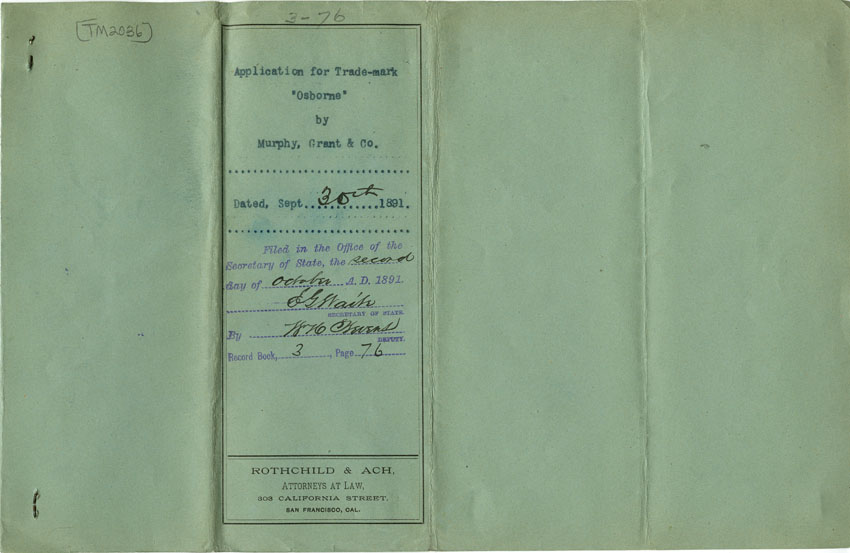 [TM2036]
3-76
Application for Trade-mark
"Osborne"
by
Murphy, Grant & Co.
Dated, Sept. 30th 1891.
Filed in the Office of the
Secretary of State, the second
day of October A.D. 1891.
E G Waite
SECRETARY OF STATE.
By W H
DEPUTY.
Record Book, 3, Page 76
ROTHCHILD & ACH,
ATTORNEYS AT LAW,
303 CALIFORNIA STREET,
SAN FRANCISCO, CAL.